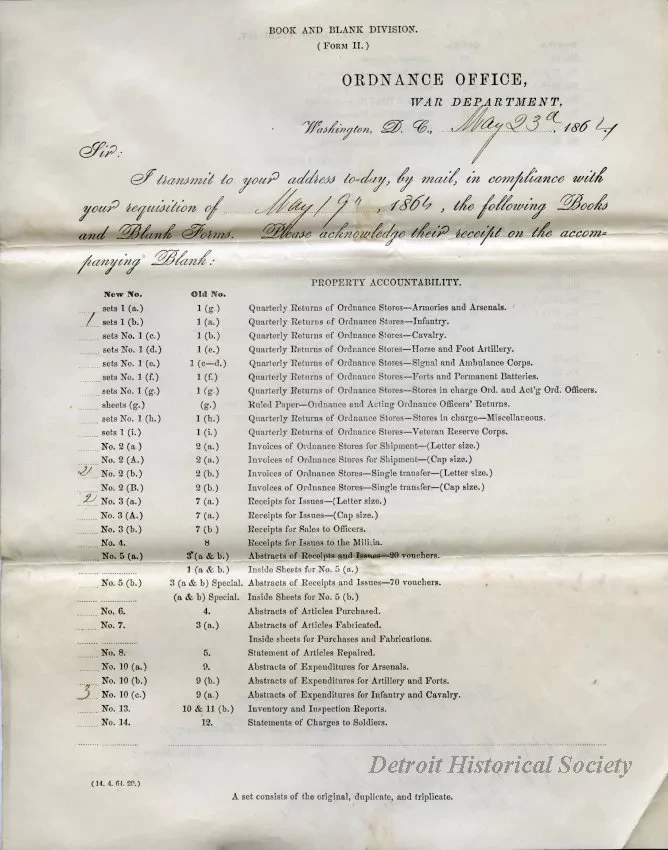 BOOK AND BLANK DIVISION.
(FORM II.)
ORDNANCE OFFICE,
WAR DEPARTMENT,
Washington, D. C., May 23d, 1864
Sir:
I transmit to your address to-day, by mail, in compliance with
your requisition of May 19th, 1864, the following Books
and Blank Forms. Please acknowledge their receipt on the accom-
panying Blank:
PROPERTY ACCOUNTABILITY.
New No. Old No.
sets 1 (a.) 1 (g.) Quarterly Returns of Ordnance Stores—Armories and Arsenals.
1 sets 1 (b.) 1 (a.) Quarterly Returns of Ordnance Stores—Infantry.
sets No. 1 (c.) 1 (b.) Quarterly Returns of Ordnance Stores—Cavalry.
sets No. 1 (d.) 1 (c.) Quarterly Returns of Ordnance Stores—Horse and Foot Artillery.
sets No. 1 (e.) 1 (c—d.) Quarterly Returns of Ordnance Stores—Signal and Ambulance Corps.
sets No. 1 (f.) 1 (f.) Quarterly Returns of Ordnance Stores—Forts and Permanent Batteries.
sets No. 1 (g.) 1 (g.) Quarterly Returns of Ordnance Stores—Stores in charge Ord. and Act'g Ord. Officers.
sheets (g.) (g.) Ruled Paper—Ordnance and Acting Ordnance Officers' Returns.
sets No. 1 (h.) 1 (h.) Quarterly Returns of Ordnance Stores—Stores in charge—Miscellaneous.
sets 1 (i.) 1 (i.) Quarterly Returns of Ordnance Stores—Veteran Reserve Corps.
No. 2 (a.) 2 (a.) Invoices of Ordnance Stores for Shipment—(Letter size.)
No. 2 (A.) 2 (a.) Invoices of Ordnance Stores for Shipment—(Cap size.)
No. 2 (b.) 2 (b.) Invoices of Ordnance Stores—Single transfer—(Letter size.)
No. 2 (B.) 2 (b.) Invoices of Ordnance Stores—Single transfer—(Cap size.)
2 No. 3 (a.) 7 (a.) Receipts for Issues—(Letter size.)
No. 3 (A.) 7 (a.) Receipts for Issues—(Cap size.)
No. 3 (b.) 7 (b.) Receipts for Sales to Officers.
No. 4. 8 Receipts for Issues to the Militia.
No. 5 (a.) 3 (a & b.) Abstracts of Receipts and Issues—20 vouchers.
1 (a & b.) Inside Sheets for No. 5 (a.)
No. 5 (b.) 3 (a & b) Special. Abstracts of Receipts and Issues—70 vouchers.
(a & b) Special. Inside Sheets for No. 5 (b.)
No. 6. 4. Abstracts of Articles Purchased.
No. 7. 3 (a.) Abstracts of Articles Fabricated.
Inside sheets for Purchases and Fabrications.
No. 8. 5. Statement of Articles Repaired.
No. 10 (a.) 9. Abstracts of Expenditures for Arsenals.
No. 10 (b.) 9 (b.) Abstracts of Expenditures for Artillery and Forts.
3 No. 10 (c.) 9 (a.) Abstracts of Expenditures for Infantry and Cavalry.
No. 13. 10 & 11 (b.) Inventory and Inspection Reports.
No. 14. 12. Statements of Charges to Soldiers.
Detroit Historical Society
(14. 4. 64. 20.)
A set consists of the original, duplicate, and triplicate.